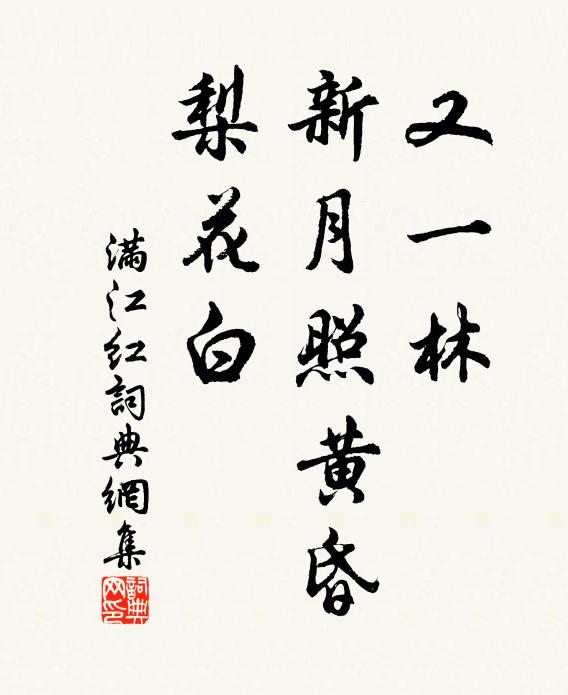 又一林
新月照黄昏
梨花白
满江红詞典網集
詞典网印